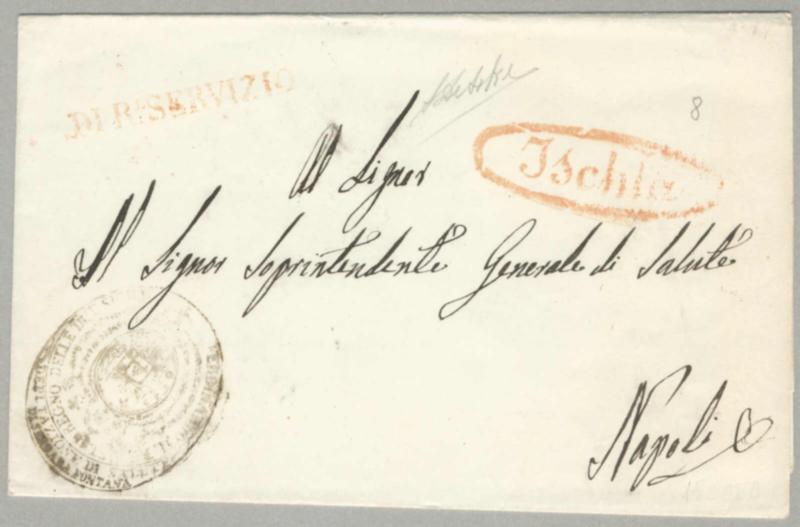 DI RL. SERVIZIO
8
Ischia
Al Signor
Il Signor Soprintendente Generale di Salute
REGNO DELLE DUE
FONTANA
Napoli